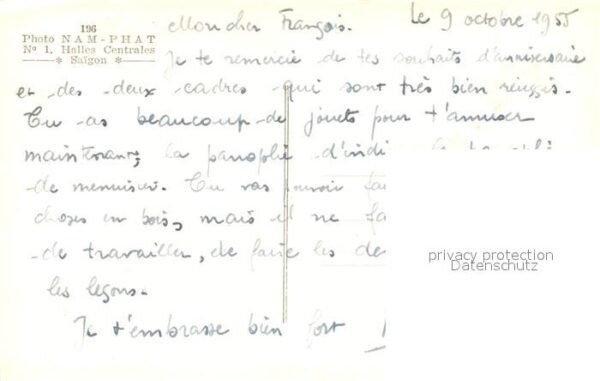 196
Photo NAM-PHAT
Nº 1, Halles Centrales
Saïgon
Le 9 octobre 1955
Mon cher François.
Je te remercie de tes souhaits d'anniversaire
et des deux cadres qui sont très bien réussis.
Tu as beaucoup de jouets pour t'amuser
maintenant, la panoplie d'indi
de menuisier. Tu vas pouvoir fai
choses en bois, mais il ne fa
de travailler, de faire les de
les leçons.
Je t'embrasse bien fort
privacy protection
Datenschutz